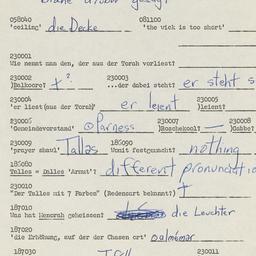 blaue drüber gesagt
058040 081100
'ceiling' die Decke 'the wick is too short'
230001
Wie nennt man den, der aus der Torah vorliest?
230002 230003
)Balkoore? + ? ...der dabei steht? er steht
230004 230005
'er liest(aus der Torah)' er leient )leient?
230006 230007 230008
'Gemeindevorstand' Parness )Roschekool? — )Gabbe?
230009 186090
'prayer shawl' Tallas Womit festgemacht? nothing
186080
Talles = Dalles 'Armut'? different pronunciatio
230010
"Der Talles mit 7 Farben" (Redensart bekannt?) +
187010
Was hat Menorah geheissen? die Leuchter
187020
'die Erhöhung, auf der der Chasen ort' Oalmémar
187030 230011